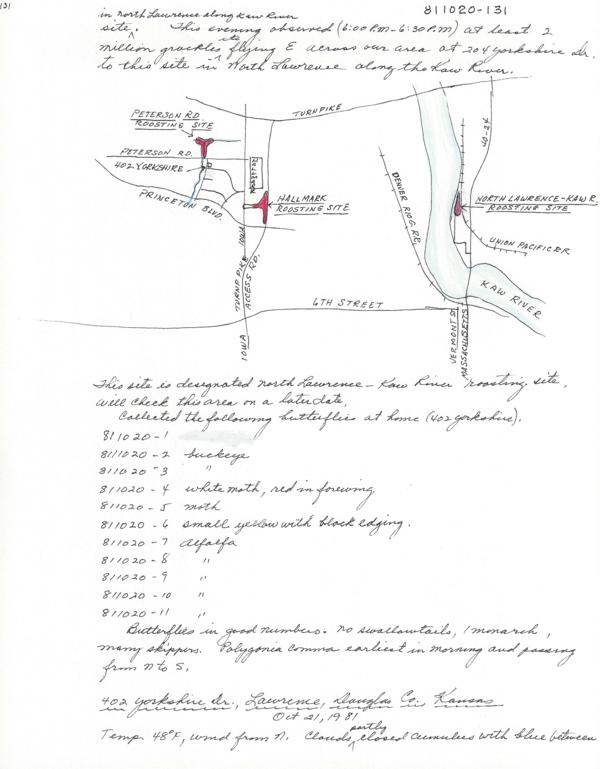 131
811020-131
in north Lawrence along Kaw River
site. This evening observed (6:00 P.M-6:30 P.M) at least 2
million grackles flying E across our area at 204 Yorkshire Dr.
to this site in North Lawrence along the Kaw River.
TURNPIKE
PETERSON RD
ROOSTING SITE
PETERSON RD.
402 YORKSHIRE
PRINCETON BLVD.
HALLMARK
ROOSTING SITE
IOWA
TURNPIKE
ACCESS RD.
IOWA
6TH STREET
DENVER RIO G. R.R.
40-24
NORTH LAWRENCE-KAW R.
ROOSTING SITE
UNION PACIFIC R.R
KAW RIVER
VERMONT ST
MASSACHUSETTS
This site is designated north Lawrence - Kaw River roosting site.
Will check this area on a later date.
Collected the following butterflies at home (402 Yorkshire).
811020-1
811020-2 buckeye
811020-3 "
811020-4 white moth, red in forewing
811020-5 moth
811020-6 small yellow with black edging.
811020-7 alfalfa
811020-8 "
811020-9 "
811020-10 "
811020-11 "
Butterflies in good numbers. no swallowtails, 1 monarch,
many skippers. Polygonia comma earliest in morning and passing
from N to S.
402 Yorkshire Dr., Lawrence, Douglas Co., Kansas
Oct 21, 1981
partly
Temp 48°F, wind from N. Clouds, closed cumulus with blue between